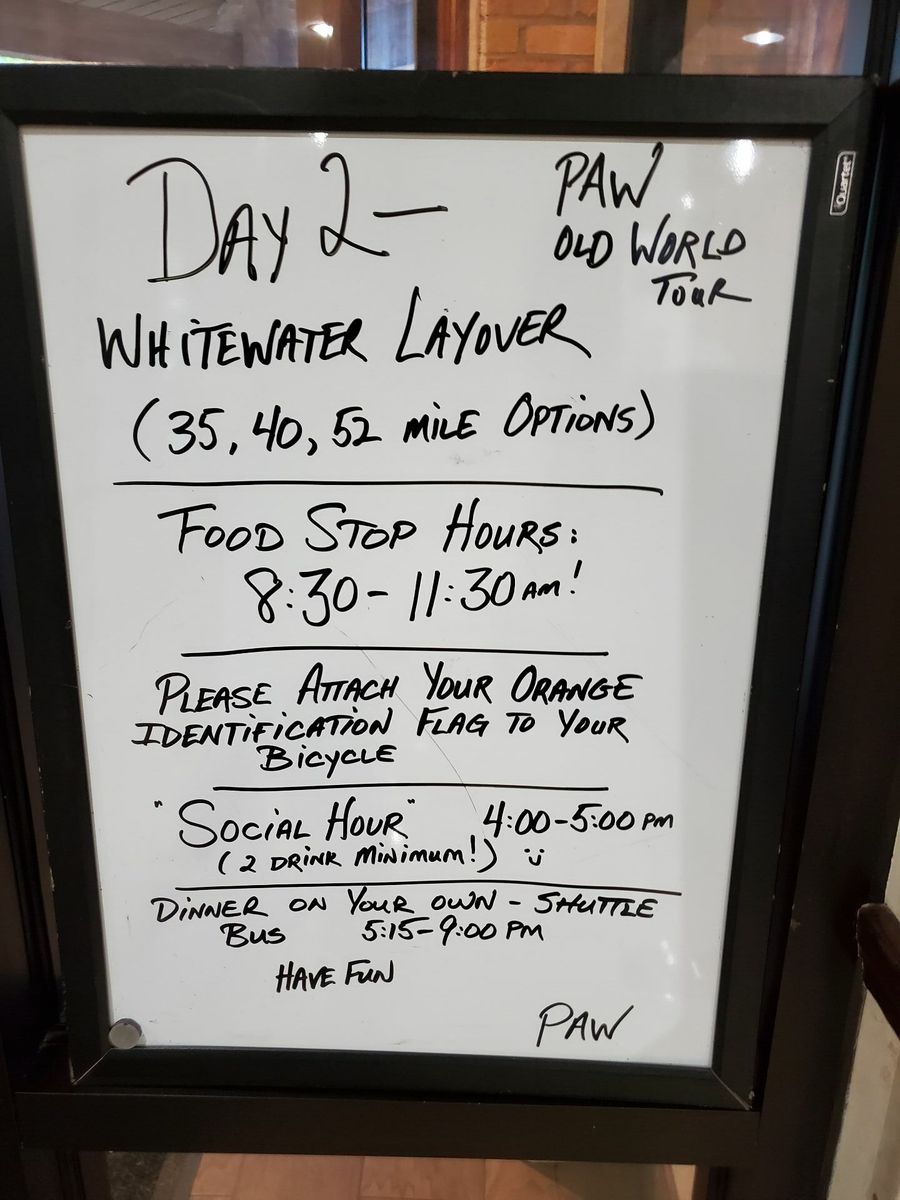 Day 2 -
PAW
OLD WORLD
TOUR
WHITEWATER LAYOVER
(35, 40, 52 MILE OPTIONS)
FOOD STOP HOURS:
8:30 - 11:30 AM!
PLEASE ATTACH YOUR ORANGE
IDENTIFICATION FLAG TO YOUR
BICYCLE
"SOCIAL HOUR" 4:00-5:00 PM
(2 DRINK MINIMUM!) ü
DINNER ON YOUR OWN - SHUTTLE
BUS 5:15-9:00 PM
HAVE FUN
PAW
Quartet